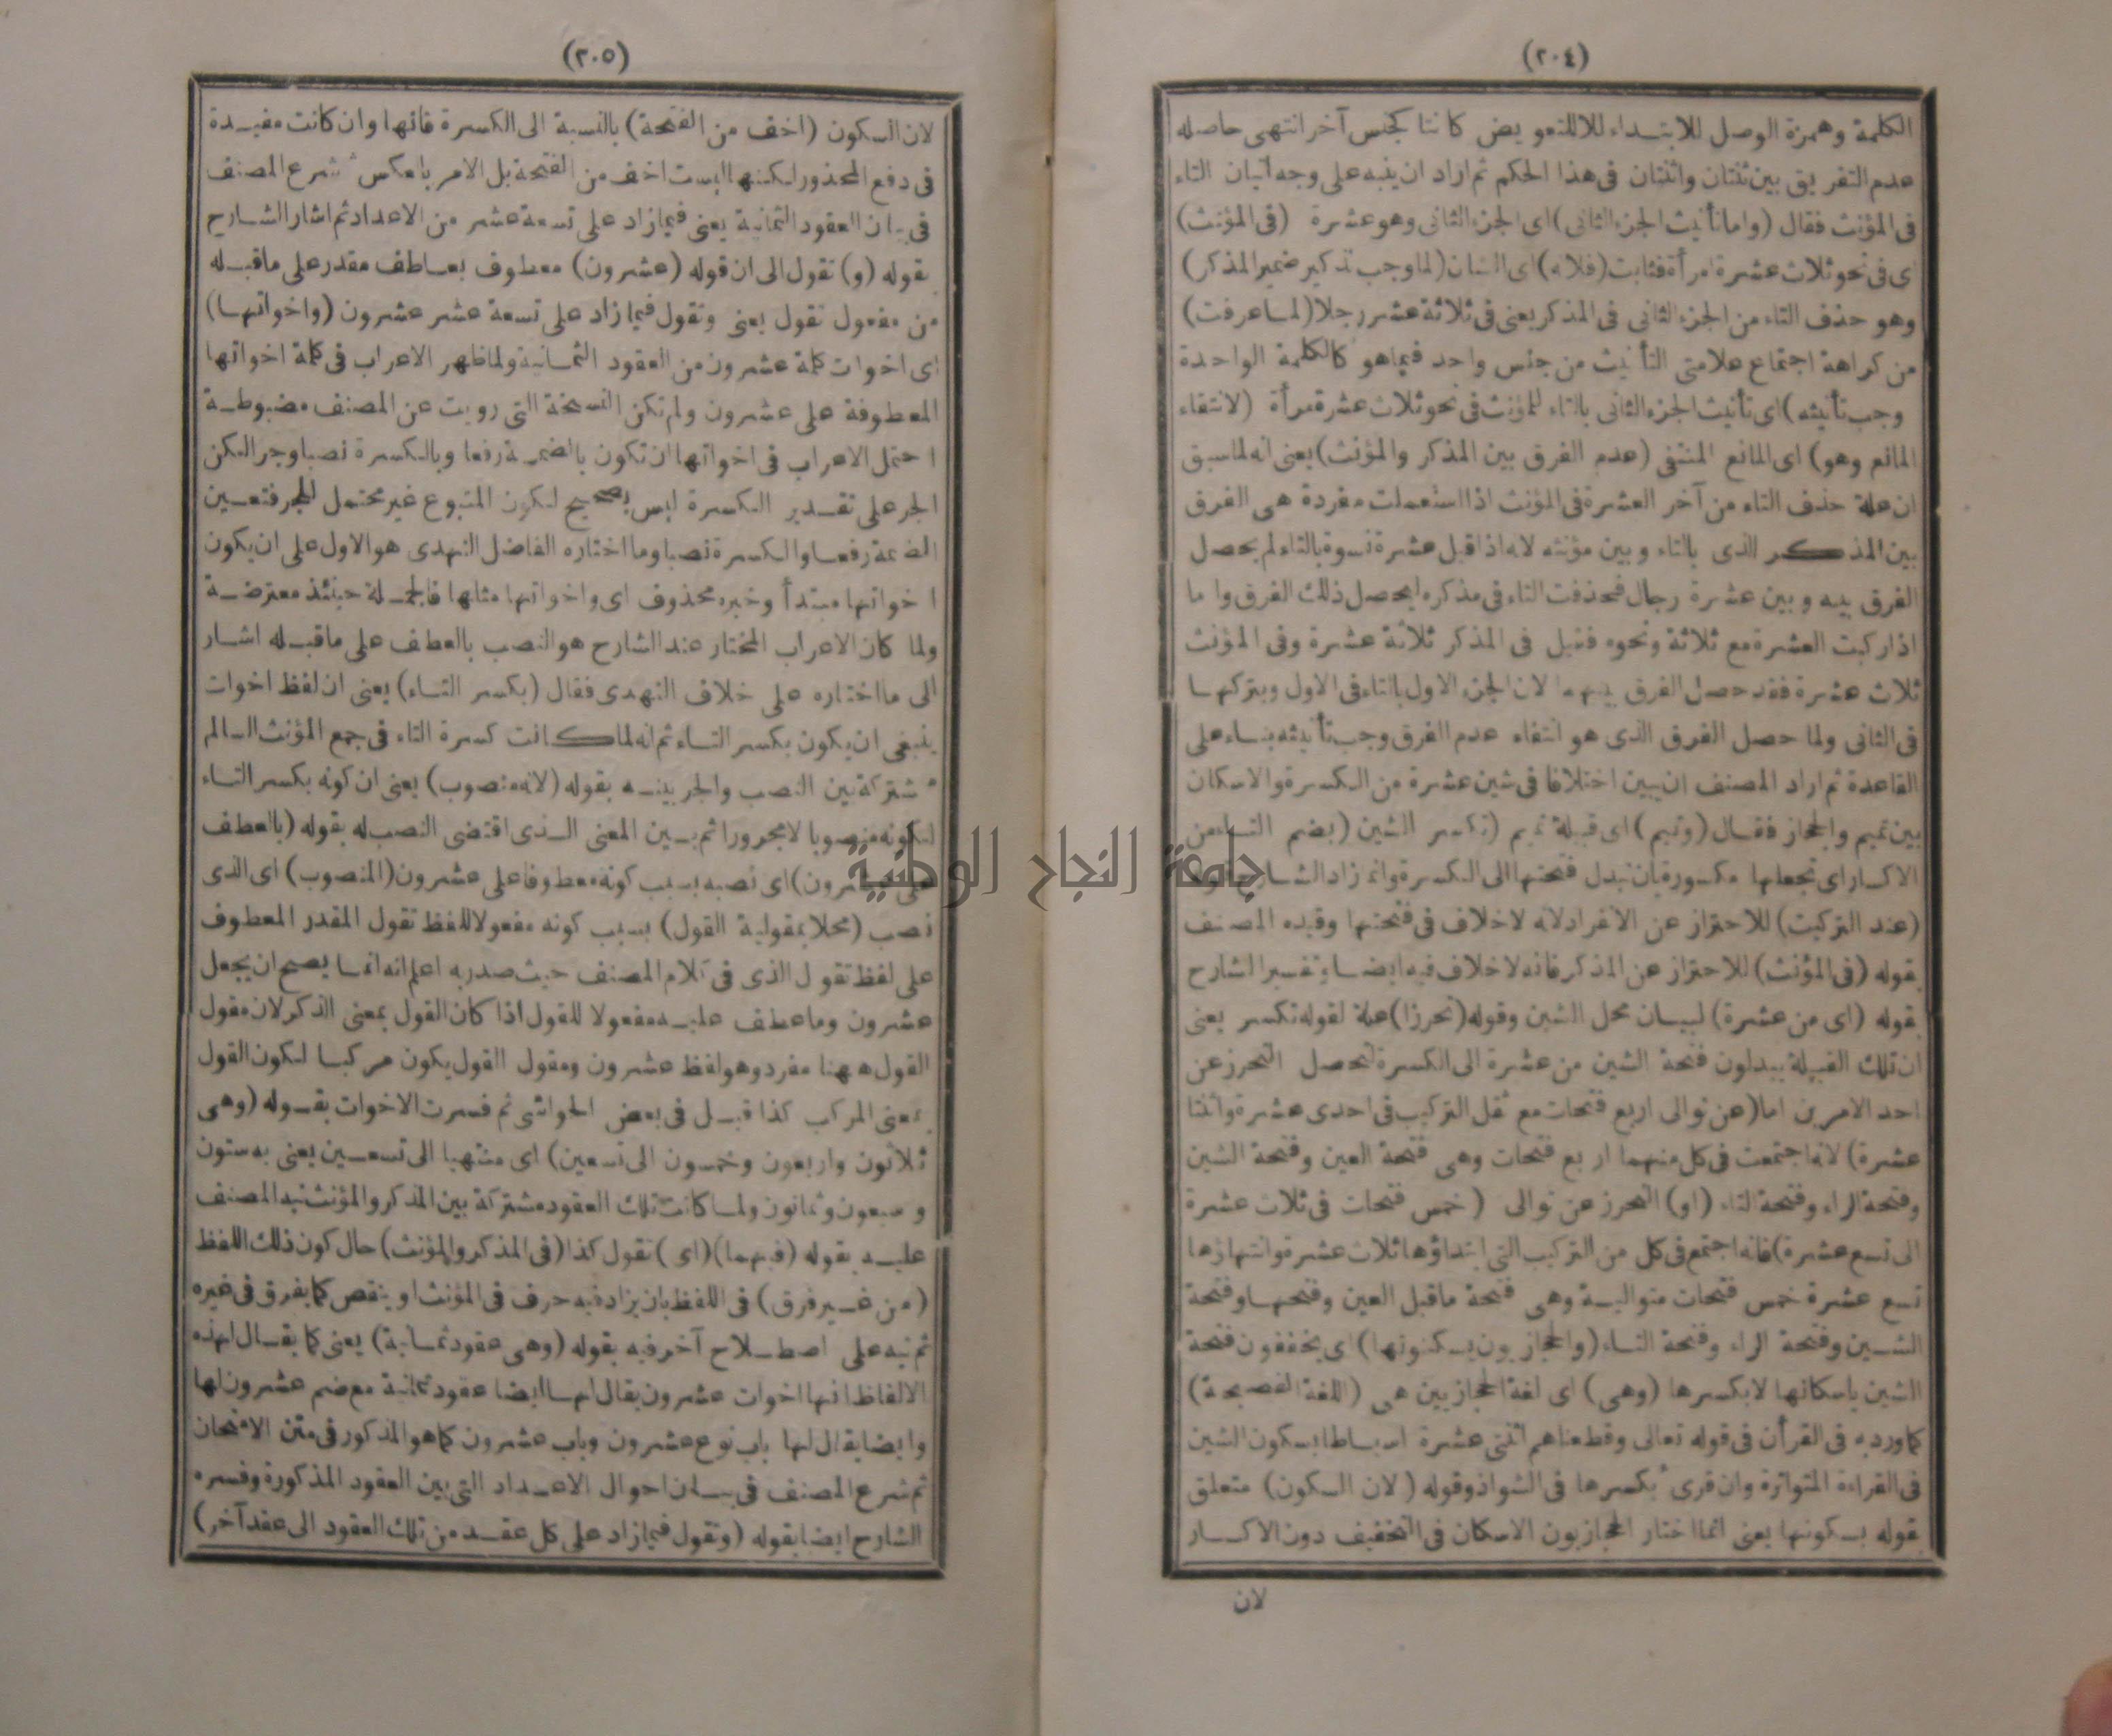 (٢٠٤)
الكلمة وهمزة الوصل للابتداء لا للتعويض كانتا كجنس آخر انتهى حاصله
عدم التفريق بين ثنتان واثنتان فى هذا الحكم ثم اراد ان ينبه على وجه اتيان التاء
فى المؤنث فقال (واما تأنيث الجزء الثانى) اى الجزء الثانى وهو عشرة (فى المؤنث)
اى فى نحو ثلاث عشرة امرأة فثابت (فلانه) اى الشان (لما وجب تذكير ضمير المذكر)
وهو حذف التاء من الجزء الثانى فى المذكر يعنى فى ثلاثة عشر رجلا (لما عرفت)
من كراهة اجتماع علامتى التأنيث من جنس واحد فيما هو كالكلمة الواحدة
وجب تأنيثه) اى تأنيث الجزء الثانى بالتاء للمؤنث فى نحو ثلاث عشرة امرأة (لانتفاء
المانع وهو) اى المانع المنتفى (عدم الفرق بين المذكر والمؤنث) يعنى انه لما سبق
ان علة حذف التاء من آخر العشرة فى المؤنث اذا استعملت مفردة هى الفرق
بين المذكر الذى بالتاء وبين مؤنثه لانه اذا قيل عشرة نسوة بالتاء لم يحصل
الفرق بينه وبين عشرة رجال فحذفت التاء فى مذكره ليحصل ذلك الفرق واما
اذا ركبت العشرة مع ثلاثة ونحوه فقيل فى المذكر ثلاثة عشرة وفى المؤنث
ثلاث عشرة فقد حصل الفرق بينهما لان الجزء الاول بالتاء فى الاول وبتركها
فى الثانى ولما حصل الفرق الذى هو انتفاء عدم الفرق وجب تأنيثه بناء على
القاعدة ثم اراد المصنف ان يبين اختلافا فى شين عشرة من الكسرة والاسكان
بين تميم والحجاز فقال (وتميم) اى قبيلة تميم (تكسر الشين (بضم التاء من
الاكسار اى تجعلها مكسورة بان تبدل فتحتها الى الكسرة وانما زاد الشارح قوله
(عند التركيب) للاحتراز عن الانفراد لانه لاخلاف فى فتحتها وقيده المصنف
بقوله (فى المؤنث) للاحتراز عن المذكر فانه لاخلاف فيه ايضا وتفسير الشارح
بقوله (اى من عشرة) لبيان محل الشين وقوله (تحرزا) علة لقوله تكسر يعنى
ان تلك القبيلة يبدلون فتحة الشين من عشرة الى الكسرة لتحصل التحرز عن
احد الامرين اما (عن توالى اربع فتحات مع ثقل التركيب فى احدى عشرة واثنتا
عشرة) لانه اجتمعت فى كل منهما اربع فتحات وهى فتحة العين وفتحة الشين
وفتحة الراء وفتحة التاء (او) التحرز عن توالى (خمس فتحات فى ثلاث عشرة
الى تسع عشرة) فانه اجتمع فى كل من التركيب التى ابتداؤها ثلاث عشرة وانتهاؤها
تسع عشرة خمس فتحات متوالية وهى فتحة ماقبل العين وفتحتها وفتحة
الشين وفتحة الراء وفتحة التاء (والحجازيون يسكنونها) اى يخففون فتحة
الشين باسكانها لا بكسرها (وهى) اى لغة الحجازيين هى (اللغة الفصيحة)
كما ورد به فى القرأن فى قوله تعالى وقطعناهم اثنتى عشرة اسباطا بسكون الشين
فى القراءة المتواترة وان قرئ بكسرها فى الشواذ وقوله (لان السكون) متعلق
بقوله يسكنونها يعنى انما اختار الحجازيون الاسكان فى التخفيف دون الاكسار
لان
(٢٠٥)
لان السكون (اخف من الفتحة) بالنسبة الى الكسرة فانها وان كانت مفيدة
فى دفع المحذور لكنها ليست اخف من الفتحة بل الامر بالعكس ثم شرع المصنف
فى بيان العقود الثمانية يعنى فيما زاد على تسعة عشر من الاعداد ثم اشار الشارح
بقوله (و) تقول الى ان قوله (عشرون) معطوف بعاطف مقدر على ماقبله
من مفعول تقول يعنى وتقول فيما زاد على تسعة عشر عشرون (واخواتها)
اى اخوات كلمة عشرون من العقود الثمانية ولما ظهر الاعراب فى كلمة اخواتها
المعطوفة على عشرون ولم تكن النسخة التى رويت عن المصنف مضبوطة
احتمل الاعراب فى اخواتها ان تكون بالضمة رفعا وبالكسرة نصبا وجرا لكن
الجر على تقدير الكسرة ليس بصحيح لكون المتبوع غير محتمل للجر فتعين
الضمة رفعا والكسرة نصبا وما اختاره الفاضل الهندى هو الاول على ان يكون
اخواتها مبتدأ وخبره محذوف اى واخواتها مثلها فالجملة حينئذ معترضة
ولما كان الاعراب المختار عند الشارح هو النصب بالعطف على ماقبله اشار
الى ما اختاره على خلاف الهندى فقال (بكسر التاء) يعنى ان لفظ اخوات
ينبغى ان يكون بكسر التاء ثم انه لما كانت كسرة التاء فى جمع المؤنث السالم
مشتركة بين النصب والجر بينه بقوله (لانه منصوب) يعنى ان كونه بكسر التاء
لكونه منصوبا لا مجرورا ثم بين المعنى الذى اقتضى النصب له بقوله (بالعطف
على عشرون) اى نصبه بسبب كونه معطوفا على عشرون (المنصوب) اى الذى
نصب (محلا بمقولية القول) بسبب كونه مفعولا للفظ تقول المقدر المعطوف
على لفظ تقول الذى فى كلام المصنف حيث صدر به اعلم انه انما يصح ان يجعل
عشرون وما عطف عليه مفعولا للقول اذا كان القول بمعنى الذكر لان مقول
القول ههنا مفرد وهو لفظ عشرون ومقول القول يكون مركبا لكون القول
بمعنى المركب كذا قيل فى بعض الحواشى ثم فسرت الاخوات بقوله (وهى
ثلاثون واربعون وخمسون الى تسعين) اى منتهيا الى تسعين يعنى به ستون
وسبعون وثمانون ولما كانت تلك العقود مشتركة بين المذكر والمؤنث نبه المصنف
عليه بقوله (فيهما) (اى) تقول كذا (فى المذكر والمؤنث) حال كون ذلك اللفظ
(من غير فرق) فى اللفظ بان يزاد فيه حرف فى المؤنث او ينقص كما يفرق فى غيره
ثم نبه على اصطلاح آخر فيه بقوله (وهى عقود ثمانية) يعنى كما يقال لهذه
الالفاظ انها اخوات عشرون يقال لها ايضا عقود ثمانية مع ضم عشرون لها
وايضا يقال لها باب نوع عشرون وباب عشرون كما هو المذكور فى متن الامتحان
ثم شرع المصنف فى بيان احوال الاعداد التى بين العقود المذكورة وفسره
الشارح ايضا بقوله (وتقول فيما زاد على كل عقد من تلك العقود الى عقد آخر)
جامعة النجاح الوطنية